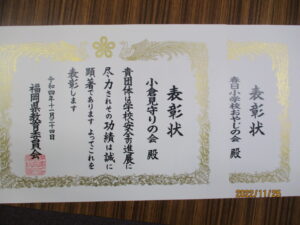 表彰状
小倉見守りの会 殿
貴団体は学校安全の進展に
尽力されその功績は誠に
顕著であります よってこれを
表彰します
令和四年十一月二十四日
福岡県教育委員会
表彰状
春日小学校おやじの会 殿
2022/11/26